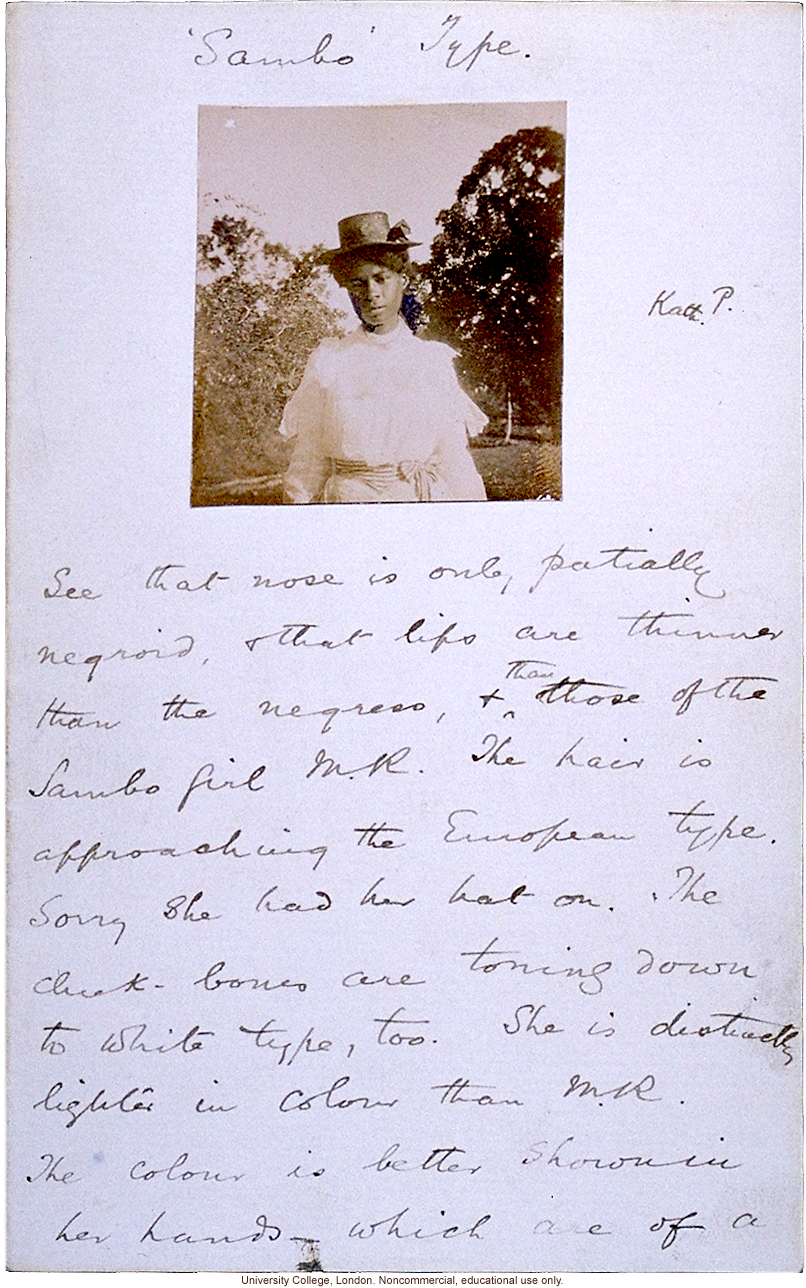 'Sambo' Type.
Kath. P.
See that nose is only partially
negroid, & that lips are thinner
than the negress, & than those of the
Sambo girl M.R. The hair is
approaching the European type.
Sorry she had her hat on. The
cheek-bones are toning down
to white type, too. She is distinctly
lighter in colour than M.R.
The colour is better shown in
her hands - which are of a
University College, London. Noncommercial, educational use only.